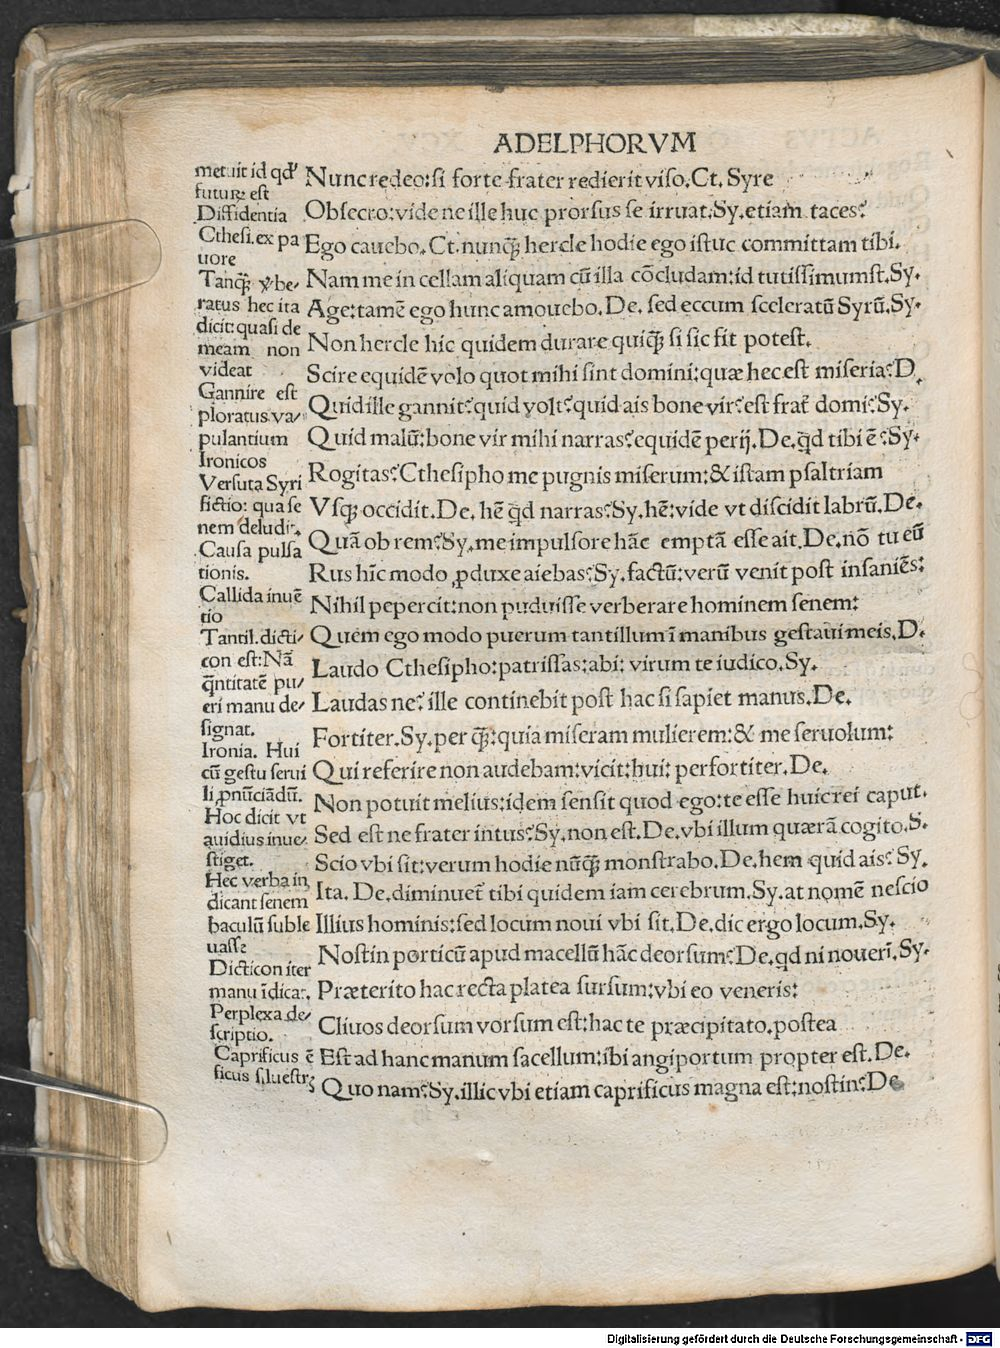 ADELPHORVM
metuit id qđ
futurꝝ est
Diffidentia
Cthesi. ex pa
uore
Tanq̃ꝫ ỹbe-
ratus hec ita
dicit: quasi de
meam non
videat
Gannire est
ploratus va-
pulantium
Ironicos
Versuta Syri
fictio: qua se
nem deludit.
Causa pulsa
tionis.
Callida inuē
tio
Tantil. dicti-
con est: Nā
q̄ntitatē pu-
eri manu de-
signat.
Ironia. Hui
cū gestu serui
li ꝓnūciādū.
Hoc dicit vt
auidius inue-
stiget.
Hec verba in
dicant senem
baculū suble
uasse
Dicticon iter
manu īdicat.
Perplexa de-
scriptio.
Caprificus ē
ficus siluestrꝭ
Nunc redeo: si forte frater redierit viso. Ct. Syre
Obsecro: vide ne ille huc prorsus se irruat. Sy. etiam taces?
Ego cauebo. Ct. nunq̃ꝫ hercle hodie ego istuc committam tibi.
Nam me in cellam aliquam cū illa cōcludam: id tutissimumst. Sy.
Age: tamē ego hunc amouebo. De. sed eccum sceleratū Syrū. Sy.
Non hercle hic quidem durare quiq̃ꝫ si sic fit potest.
Scire equidē volo quot mihi sint domini: quæ hec est miseria? D.
Quid ille gannit? quid volt? quid ais bone vir? est frat̃ domi? Sy.
Quid malū: bone vir mihi narras? equidē perij. De. q̄d tibi ē? Sy.
Rogitas? Cthesipho me pugnis miserum: & istam psaltriam
Vsqꝫ occidit. De. hē q̄d narras? Sy. hē: vide vt discidit labrū. De.
Quā ob rem? Sy. me impulsore hāc emptā esse ait. De. nō tu eū
Rus hīc modo ꝓduxe aiebas? Sy. factū: verū venit post insaniēs:
Nihil pepercit: non puduisse verberare hominem senem:
Quem ego modo puerum tantillum ī manibus gestaui meis. D.
Laudo Cthesipho: patrissas: abi: virum te iudico. Sy.
Laudas ne? ille continebit post hac si sapiet manus. De.
Fortiter. Sy. per q̃ꝫ: quia miseram mulierem: & me seruolum:
Qui referire non audebam: vicit: hui: perfortiter. De.
Non potuit melius: idem sensit quod ego: te esse huic rei caput.
Sed est ne frater intus? Sy. non est. De. vbi illum quærā cogito. S.
Scio vbi sit: verum hodie nūq̃ꝫ monstrabo. De. hem quid ais? Sy.
Ita. De. diminuet̃ tibi quidem iam cerebrum. Sy. at nomē nescio
Illius hominis: sed locum noui vbi sit. De. dic ergo locum. Sy.
Nostin porticū apud macellū hāc deorsum? De. q̄d ni nouerī. Sy.
Præterito hac recta platea sursum: vbi eo veneris:
Cliuos deorsum vorsum est: hac te præcipitato. postea
Est ad hanc manum sacellum: ibi angiportum propter est. De.
Quo nam? Sy. illic vbi etiam caprificus magna est: nostin? De
Digitalisierung gefördert durch die Deutsche Forschungsgemeinschaft - DFG